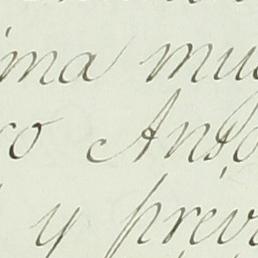 ima mu
co Anto
y prev